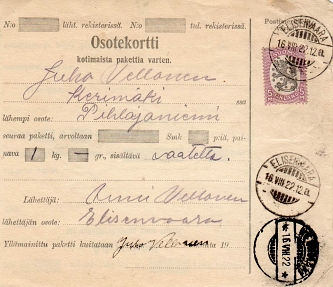 N:o läht. rekisterissä. N:o tul. rekisterissä.
Osotekortti
kotimaista pakettia varten.
Juho Vellonen
Kerimäki ssa
lähempi osote: Pihlajaniemi
seuraa paketti, arvoltaan Smk p:iä, pai-
nava 1 kg. gr., sisältävä vaatetta
Lähettäjä: Anni Vellonen
lähettäjän osote: Elisenvaara
Yllämainittu paketti kuitataan Juho Vellonen 19
ELISENVAARA
16.VIII.22.12.
ELISENVAARA
16.VIII.22.12.
16.VIII.22